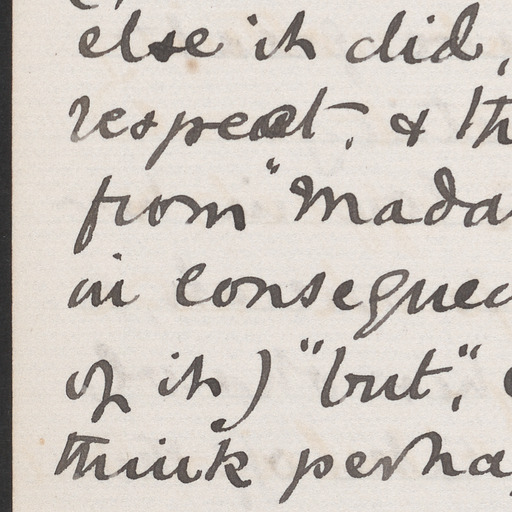 else it did,
respect. & th
from "Mada
in consequec
of it) "but",
think perha